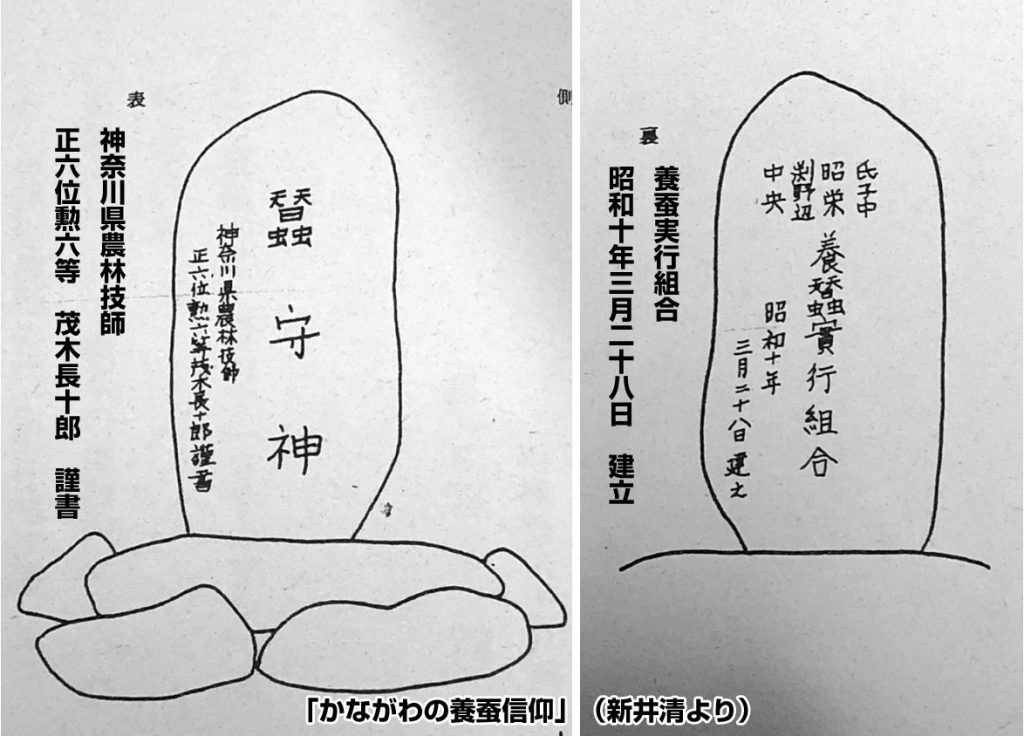 表
側
蠶守神
神奈川県農林技師
正六位勲六等茂木長十郎謹書
神奈川県農林技師
正六位勲六等　茂木長十郎　謹書
裏
氏子中
昭栄
渕野辺
中央
養蠶實行組合
昭和十年
三月二十八日 建之
養蚕実行組合
昭和十年三月二十八日　建立
「かながわの養蚕信仰」（新井清より）